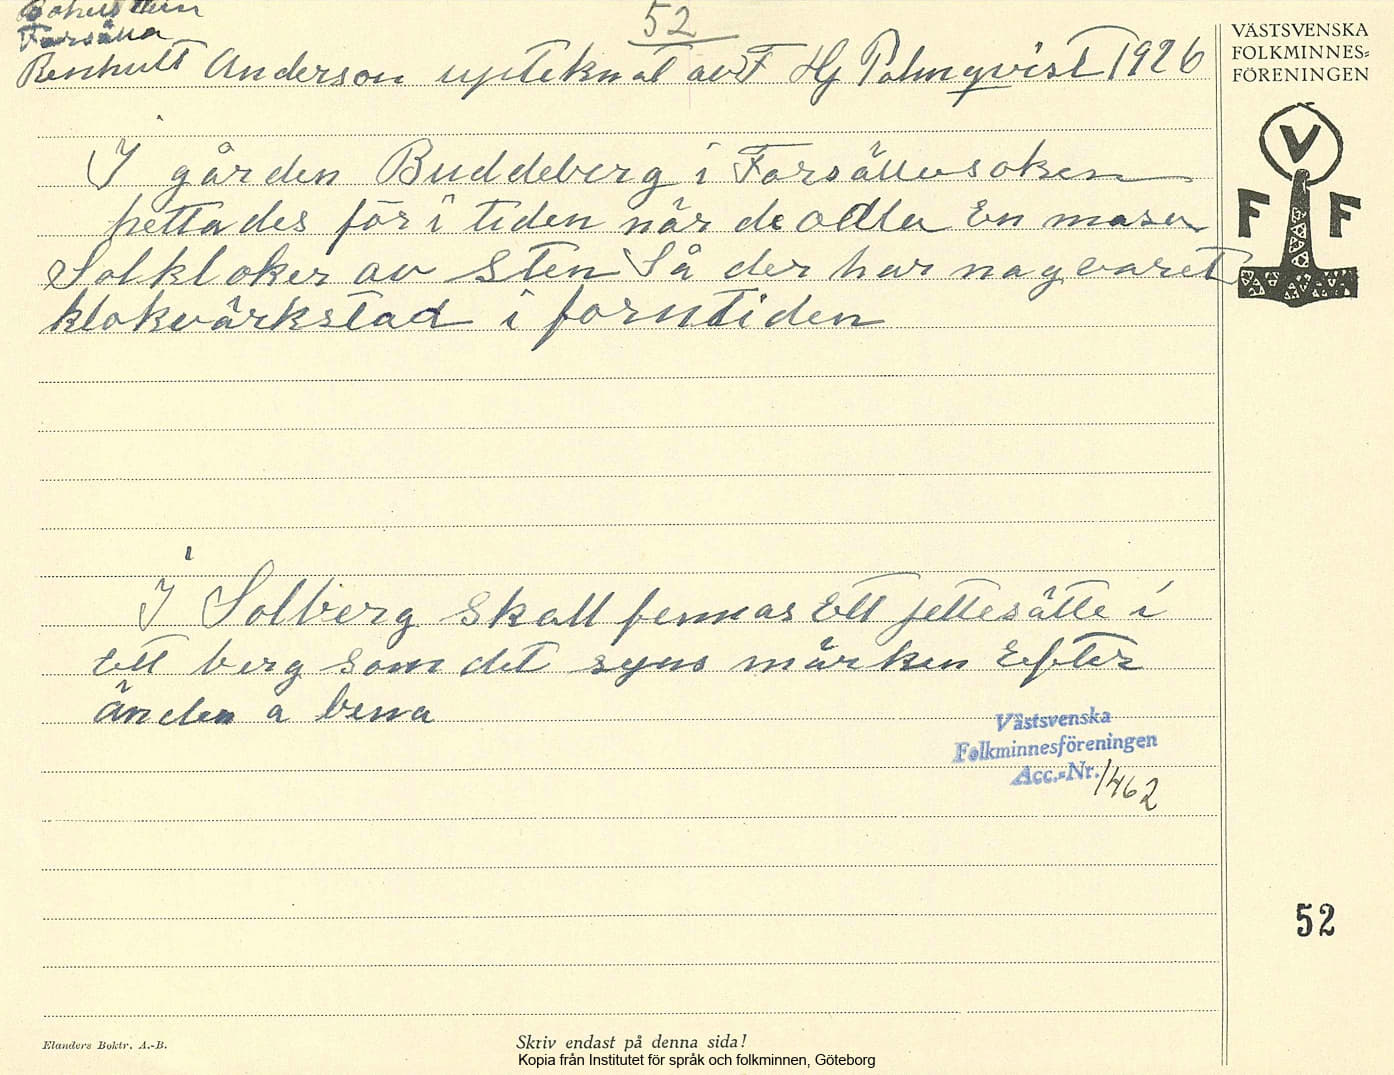 Bohuslän
52
Forsälla
Benhult Anderson upteknat av F Hj Palmqvist 1926
VÄSTSVENSKA
FOLKMINNES=
FÖRENINGEN
V
F F
I gården Buddeberg i Forsällasoken
hettades för i tiden när de odla En masa
Solkloker av Sten Så der har nag varet
klokvärkstad i forntiden
I Solberg Skall fennas Ett jettesätte i
Ett berg som det syns märken Efter
änden a bena
Västsvenska
Folkminnesföreningen
Acc.-Nr. 1462
52
Elanders Boktr. A.-B.
Skriv endast på denna sida!
Kopia från Institutet för språk och folkminnen, Göteborg